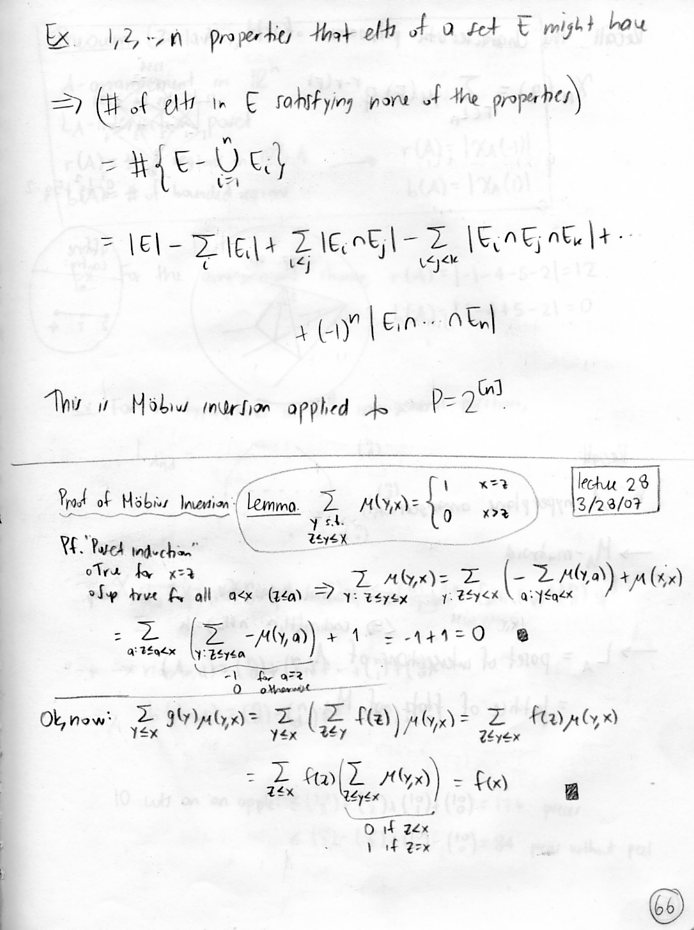 Ex. 1,2,..,n properties that elts of a set E might have
⇒ (# of elts in E satisfying none of the properties)
= #{E - ⋃_{i=1}^{n} E_i}
= |E| - Σ_i |E_i| + Σ_{i<j} |E_i ∩ E_j| - Σ_{i<j<k} |E_i ∩ E_j ∩ E_k| + ...
+ (-1)^n |E_1 ∩ ... ∩ E_n|
This is Möbius inversion applied to P = 2^{[n]}.
lecture 28
3/28/07
Proof of Möbius Inversion: Lemma. Σ_{y s.t. z≤y≤x} μ(y,x) = { 1 x=z
0 x>z
Pf. "Poset induction"
o True for x=z
o Sup true for all a<x (z≤a) ⇒ Σ_{y: z≤y≤x} μ(y,x) = Σ_{y: z≤y<x} (- Σ_{a: y≤a<x} μ(y,a)) + μ(x,x)
= Σ_{a: z≤a<x} (Σ_{y: z≤y≤a} -μ(y,a)) + 1 = -1+1 = 0 ■
-1 for a=z
0 otherwise
Ok, now: Σ_{y≤x} g(y)μ(y,x) = Σ_{y≤x} (Σ_{z≤y} f(z)) μ(y,x) = Σ_{z≤y≤x} f(z)μ(y,x)
= Σ_{z≤x} f(z) (Σ_{z≤y≤x} μ(y,x)) = f(x) ■
0 if z<x
1 if z=x
66